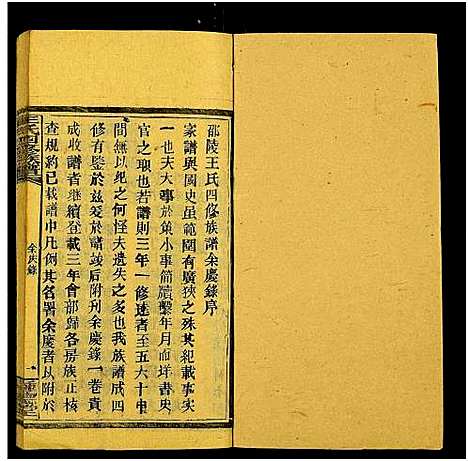 邵陵王氏四修族譜余慶錄序
家譜與國史虽範圍有廣狹之殊其紀載事實
一也夫大事於策小事簡牘繫年月而详書史
官之职也若譜則三年一修遠者至五六十年
間無以紀之何怪夫遺失之多也我族譜成四
修有鑒於兹爰於譜竣后附刊余慶錄一卷責
成收譜者继續登載三年會部歸各房族正核
查規約已载譜中凡刨其名署余慶者以附於
王氏四修族譜
余庆錄
一